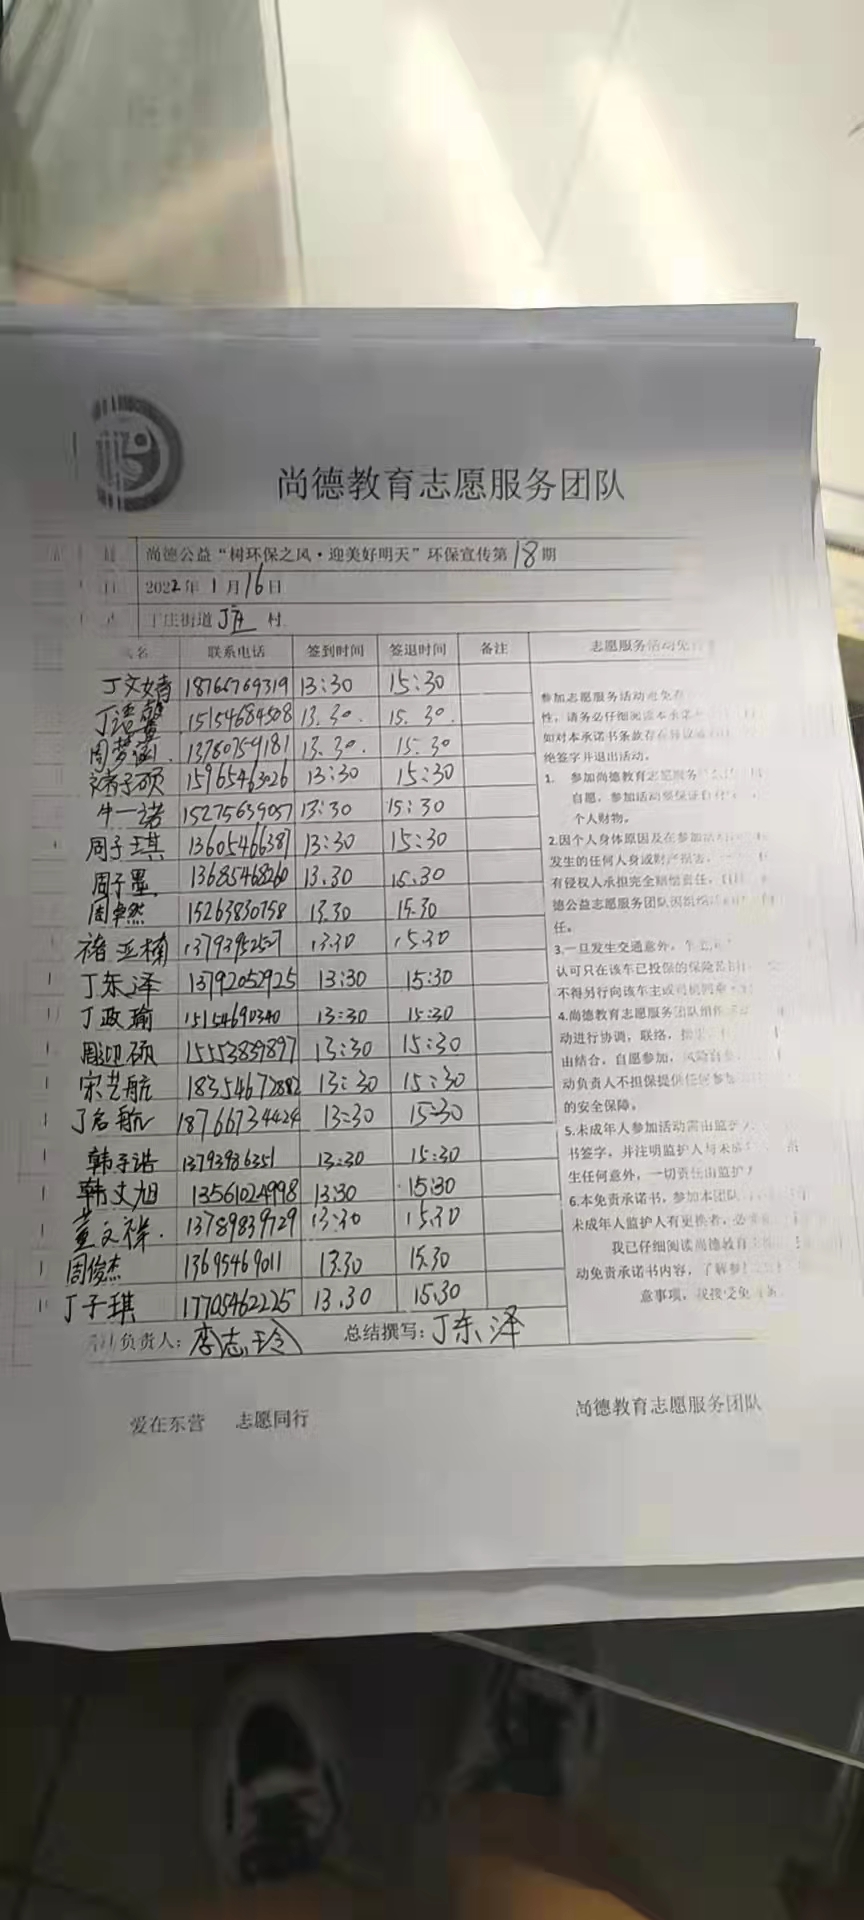 尚德教育志愿服务团队
尚德公益“树环保之风·迎美好明天”环保宣传第18期
2022年1月16日
丁庄街道丁庄村
姓名 联系电话 签到时间 签退时间 备注 志愿服务活动免
丁文婧 18765769319 13:30 15:30
丁 15154684508 13.30. 15.30.
周梦涵. 13780759181 13.30. 15.30
褚子硕 15965463026 13:30 15:30
牛一诺 15275639057 13:30 15:30
周子琪 13605466381 13:30 15:30
周子墨 13685468260 13.30 15.30
周卓然 15263830758 13.30 15.30
褚亚楠 13793952527 13.30 15.30
丁东泽 13792052925 13:30 15:30
丁政瑜 15154690340 13:30 15:30
周迎硕 15553839897 13:30 15:30
宋艺航 18354672882 13:30 15:30
丁启航 18766734424 13:30 15:30
韩子诰 13793986351 13:30 15:30
韩文旭 13561024998 13:30 15:30
董文祥. 13789839729 13:30 15.30
周俊杰 13695469011 13.30 15.30
丁子琪 17705462225 13.30 15.30
参加志愿服务活动避免存
性，请务必仔细阅读本承诺
如对本承诺书条款存在异议
绝签字并退出活动。
1. 参加尚德教育志愿服务
自愿，参加活动要保证自
个人财物。
2.因个人身体原因及在参加活
发生的任何人身或财产损害，
有侵权人承担完全赔偿责任，
德公益志愿服务团队因组织
任。
3.一旦发生交通意外，
认可只在该车已投保的保险
不得另行向该车主或司机
4.尚德教育志愿服务团队
动进行协调，联络，
由结合，自愿参加，风险自
动负责人不担保提供任何参加
的安全保障。
5.未成年人参加活动需由监护人
书签字，并注明监护人与未成
生任何意外，一切责任由监护人
6.本免责承诺书，参加本团队
未成年人监护人有更换者，必
我已仔细阅读尚德教育
动免责承诺书内容，了解参
意事项，我接受免
负责人：李志玲 总结撰写：丁东泽
爱在东营 志愿同行 尚德教育志愿服务团队